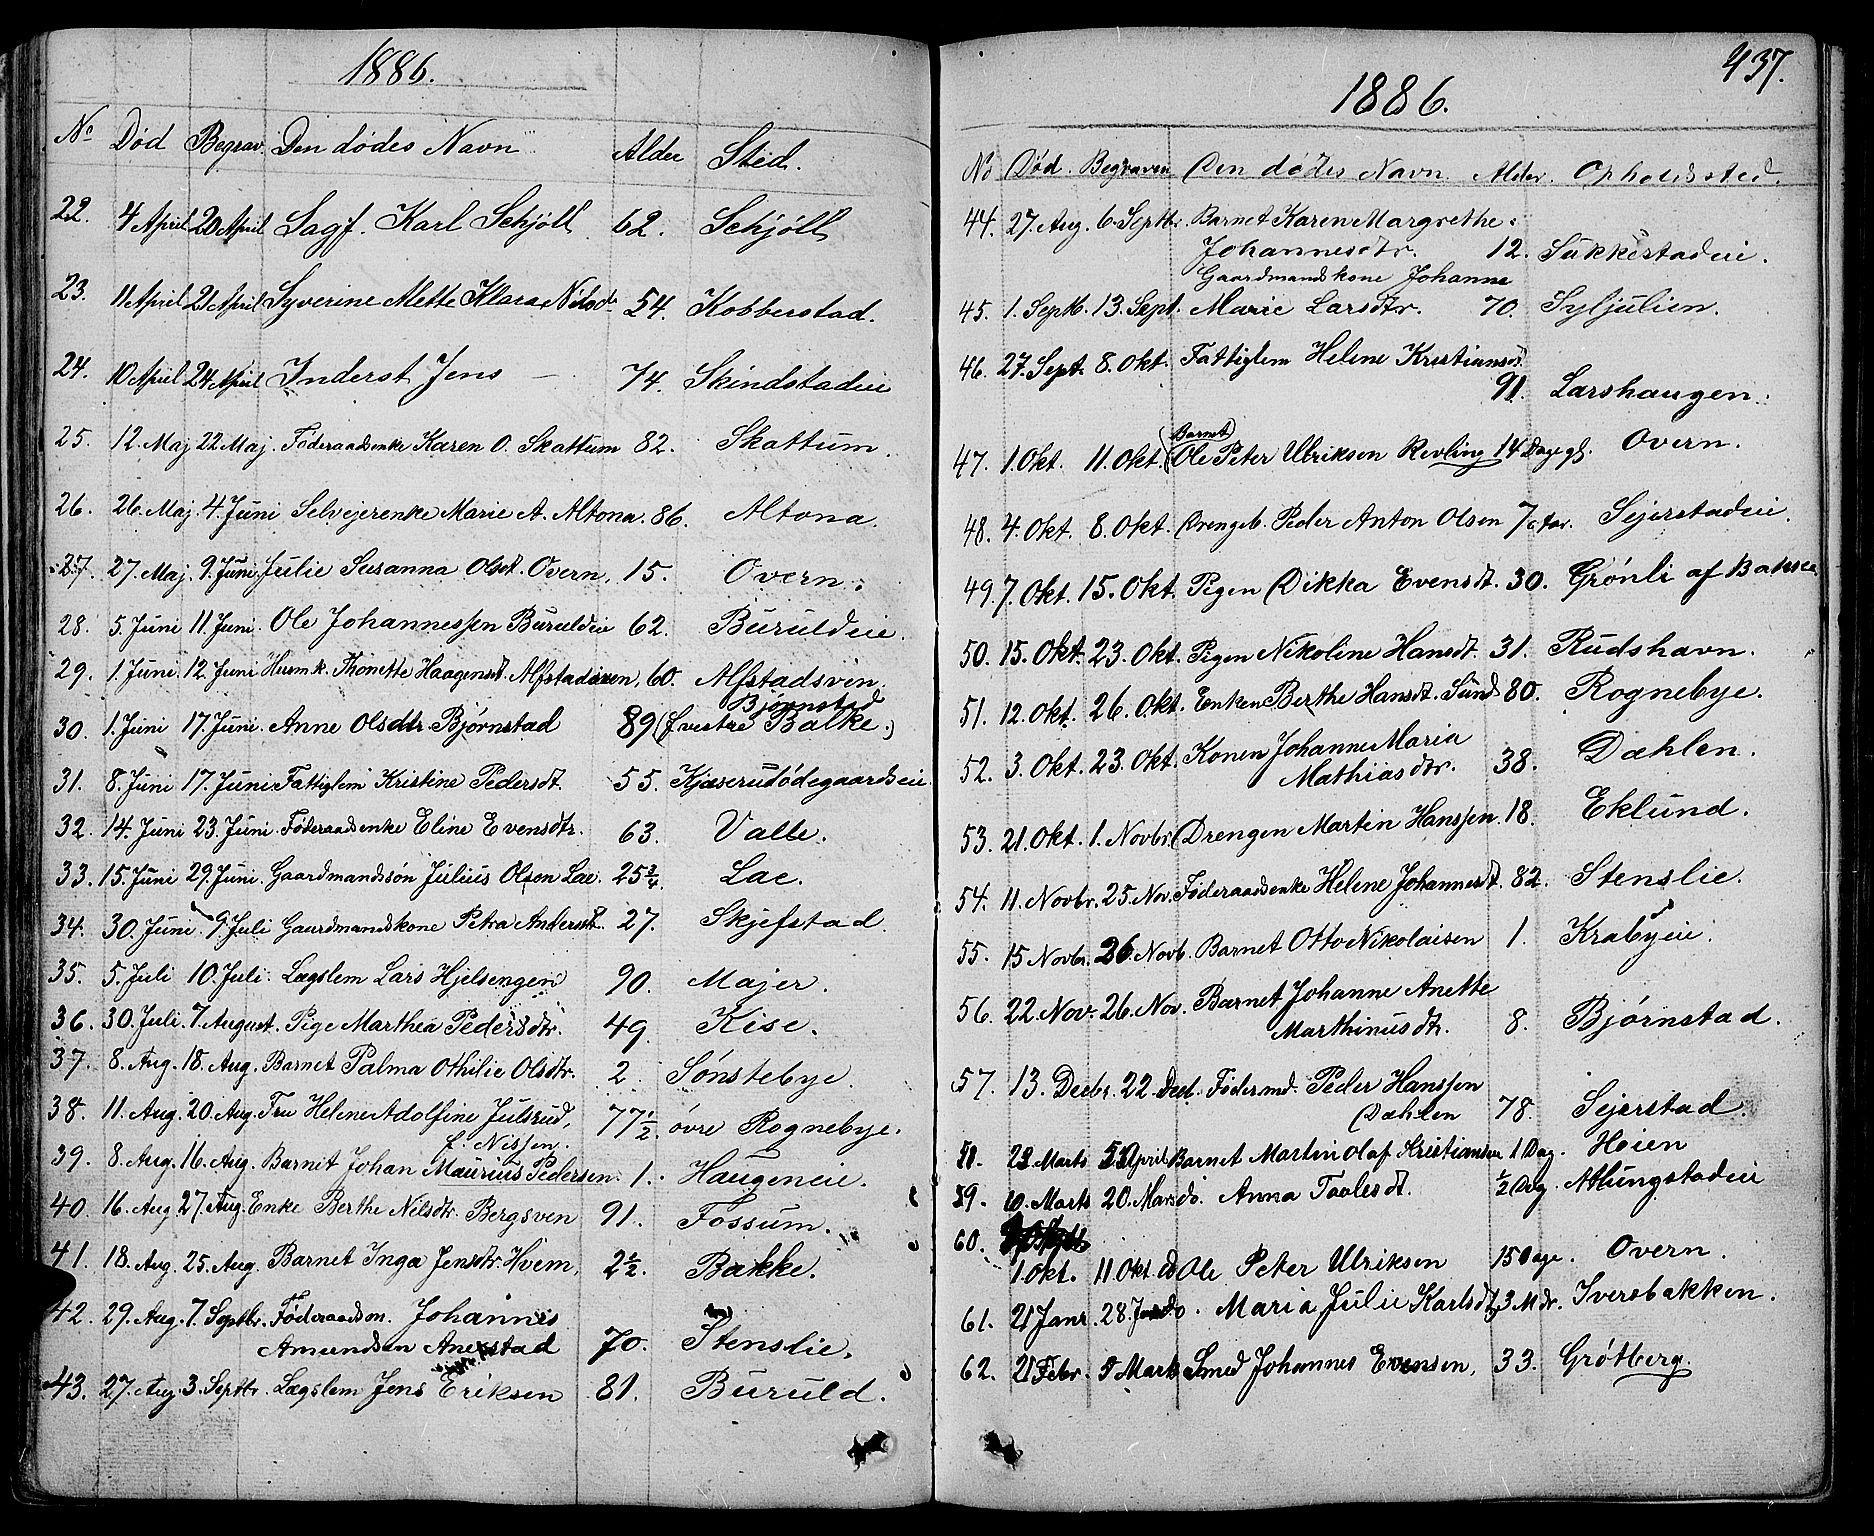 1886.
No Død Begrav. Den dødes Navn Alder Sted.
22. 4 April 20 April Sagf. Karl Schjöll 62. Schjöll
23. 11 April 21 April Syverine Mette Klara Nilsd. 54. Kobberstad.
24. 10 April 24 April Inderst Jens — 74. Skindstadeie
25. 12. Maj 22 Maj. Föderaadsenke Karen O. Skattum 82. Skattum.
26. 26. Maj. 4. Juni Selvejerenke Marie A. Altona. 86. Altona.
27. 27. Maj. 9. Juni Julie Susanna Olsdt. Overn, 15. Overn.
28. 5. Juni 11. Juni. Ole Johannessen Buruldeie 62. Buruldeie.
29. 1. Juni. 12. Juni Husm.k. Thonette Haagensdt. Alfstadsveen, 60. Alfstadsvin.
Bjørnstad
30. 1. Juni 17. Juni. Anne Olsdtr. Bjørnstad 89 (østre Balke.)
31. 8. Juni 17. Juni Fattiglem Kristine Pedersdt. 55. Kjæserudödegaardseie
32. 14. Juni 23. Juni. Föderaadsenke Eline Evensdtr. 63. Valle.
33. 15. Juni 29. Juni. Gaardmandssøn Julius Olsen Lae. 25 3/4. Lae.
34. 30. Juni. 9. Juli Gaardmandskone Petra Andersdt. 27. Skjefstad.
35. 5. Juli 10. Juli. Lægslem Lars Hjelsengen 90. Majer.
36. 30. Juli. 7. August. Pige Marthea Pedersdtr. 49. Kise.
37. 8. Aug. 18. Aug. Barnet Palma Othilie Olsdtr. 2. Sönstebye.
38. 11. Aug. 20. Aug. Fru Helene Adolfine Julsrud,
f. Nissen. 77 1/2. övre Rognebye.
39. 8. Aug. 16. Aug. Barnet Johan Maurius Pedersen. 1. Haugeneie.
40. 16. Aug. 27. Aug. Enke Berthe Nilsdtr. Bergsven 91. Fossum.
41. 18. Aug. 25. Aug. Barnet Inga Jensdtr. Hvem, 2 1/2. Bakke.
42. 29. Aug. 7. Septbr. Föderaadsm. Johannes
Amundsen Anerstad 70. Stenslie.
43. 27. Aug. 3. Septbr. Lægslem Jens Eriksen 81. Buruld.
437.
1886.
No Død. Begraven Den dødes Navn. Alder. Opholdssted.
44. 27. Aug. 6. Septbr. Barnet Karen Margrethe
Johannesdtr. 12. Sukkestadeie.
Gaardmandskone Johanne
45. 1. Septb. 13. Sept. Marie Larsdtr. 70. Syljulien.
46. 27. Sept. 8. Okt. Fattiglem Helene Kristiansdt
91. Larshaugen.
Barnet
47. 1. Okt. 11. Okt. Ole Peter Ulriksen Revling 14 Dage gl. Overn.
48. 4. Okt. 8. Okt. Drengeb. Peder Anton Olsen 7 Sejerstadeie.
49. 7. Okt. 15. Okt. Pigen Dikka Evensdt. 30. Grönli af
50. 15. Okt. 23. Okt. Pigen Nikoline Hansdt. 31. Rudshavn.
51. 12. Okt. 26. Okt. Enken Berthe Hansdt. Sund 80. Rognebye.
52. 3. Okt. 23. Okt. Konen Johanne Maria
Mathiasdtr. 38. Dæhlen.
53. 21. Okt. 1. Novbr. Drengen Martin Hanssen. 18. Eklund.
54. 11. Novbr. 25. Nov. Föderaadsenke Helene Johannesdt. 82. Stenslie.
55. 15 Novbr. 26. Novb. Barnet Otto Nikolaisen 1. Krabyeie.
56. 22. Nov. 26. Nov. Barnet Johanne Anette
Marthinusdtr. 8. Bjørnstad.
57. 13. Decbr. 22. Dec. Föderm.d. Peder Hanssen
Dæhlen 78. Sejerstad.
58. Marts April Barnet Martin Olaf Kristiansen 1 Dag. Hoien
59. Marts 20. Mars do. Anna Taalesdt. 1/2 Dag Atlungstadeie
60.
1. Okt. 11 Okt. do Ole Peter Ulriksen 15 Dage. Overn.
61. 21 Janr. 28. do. Maria Julie Karlsdt. 3 Mdr. Iversbakken.
62. 21 Febr. Marts Smed Johannes Evensen, 33. Grøtberg.